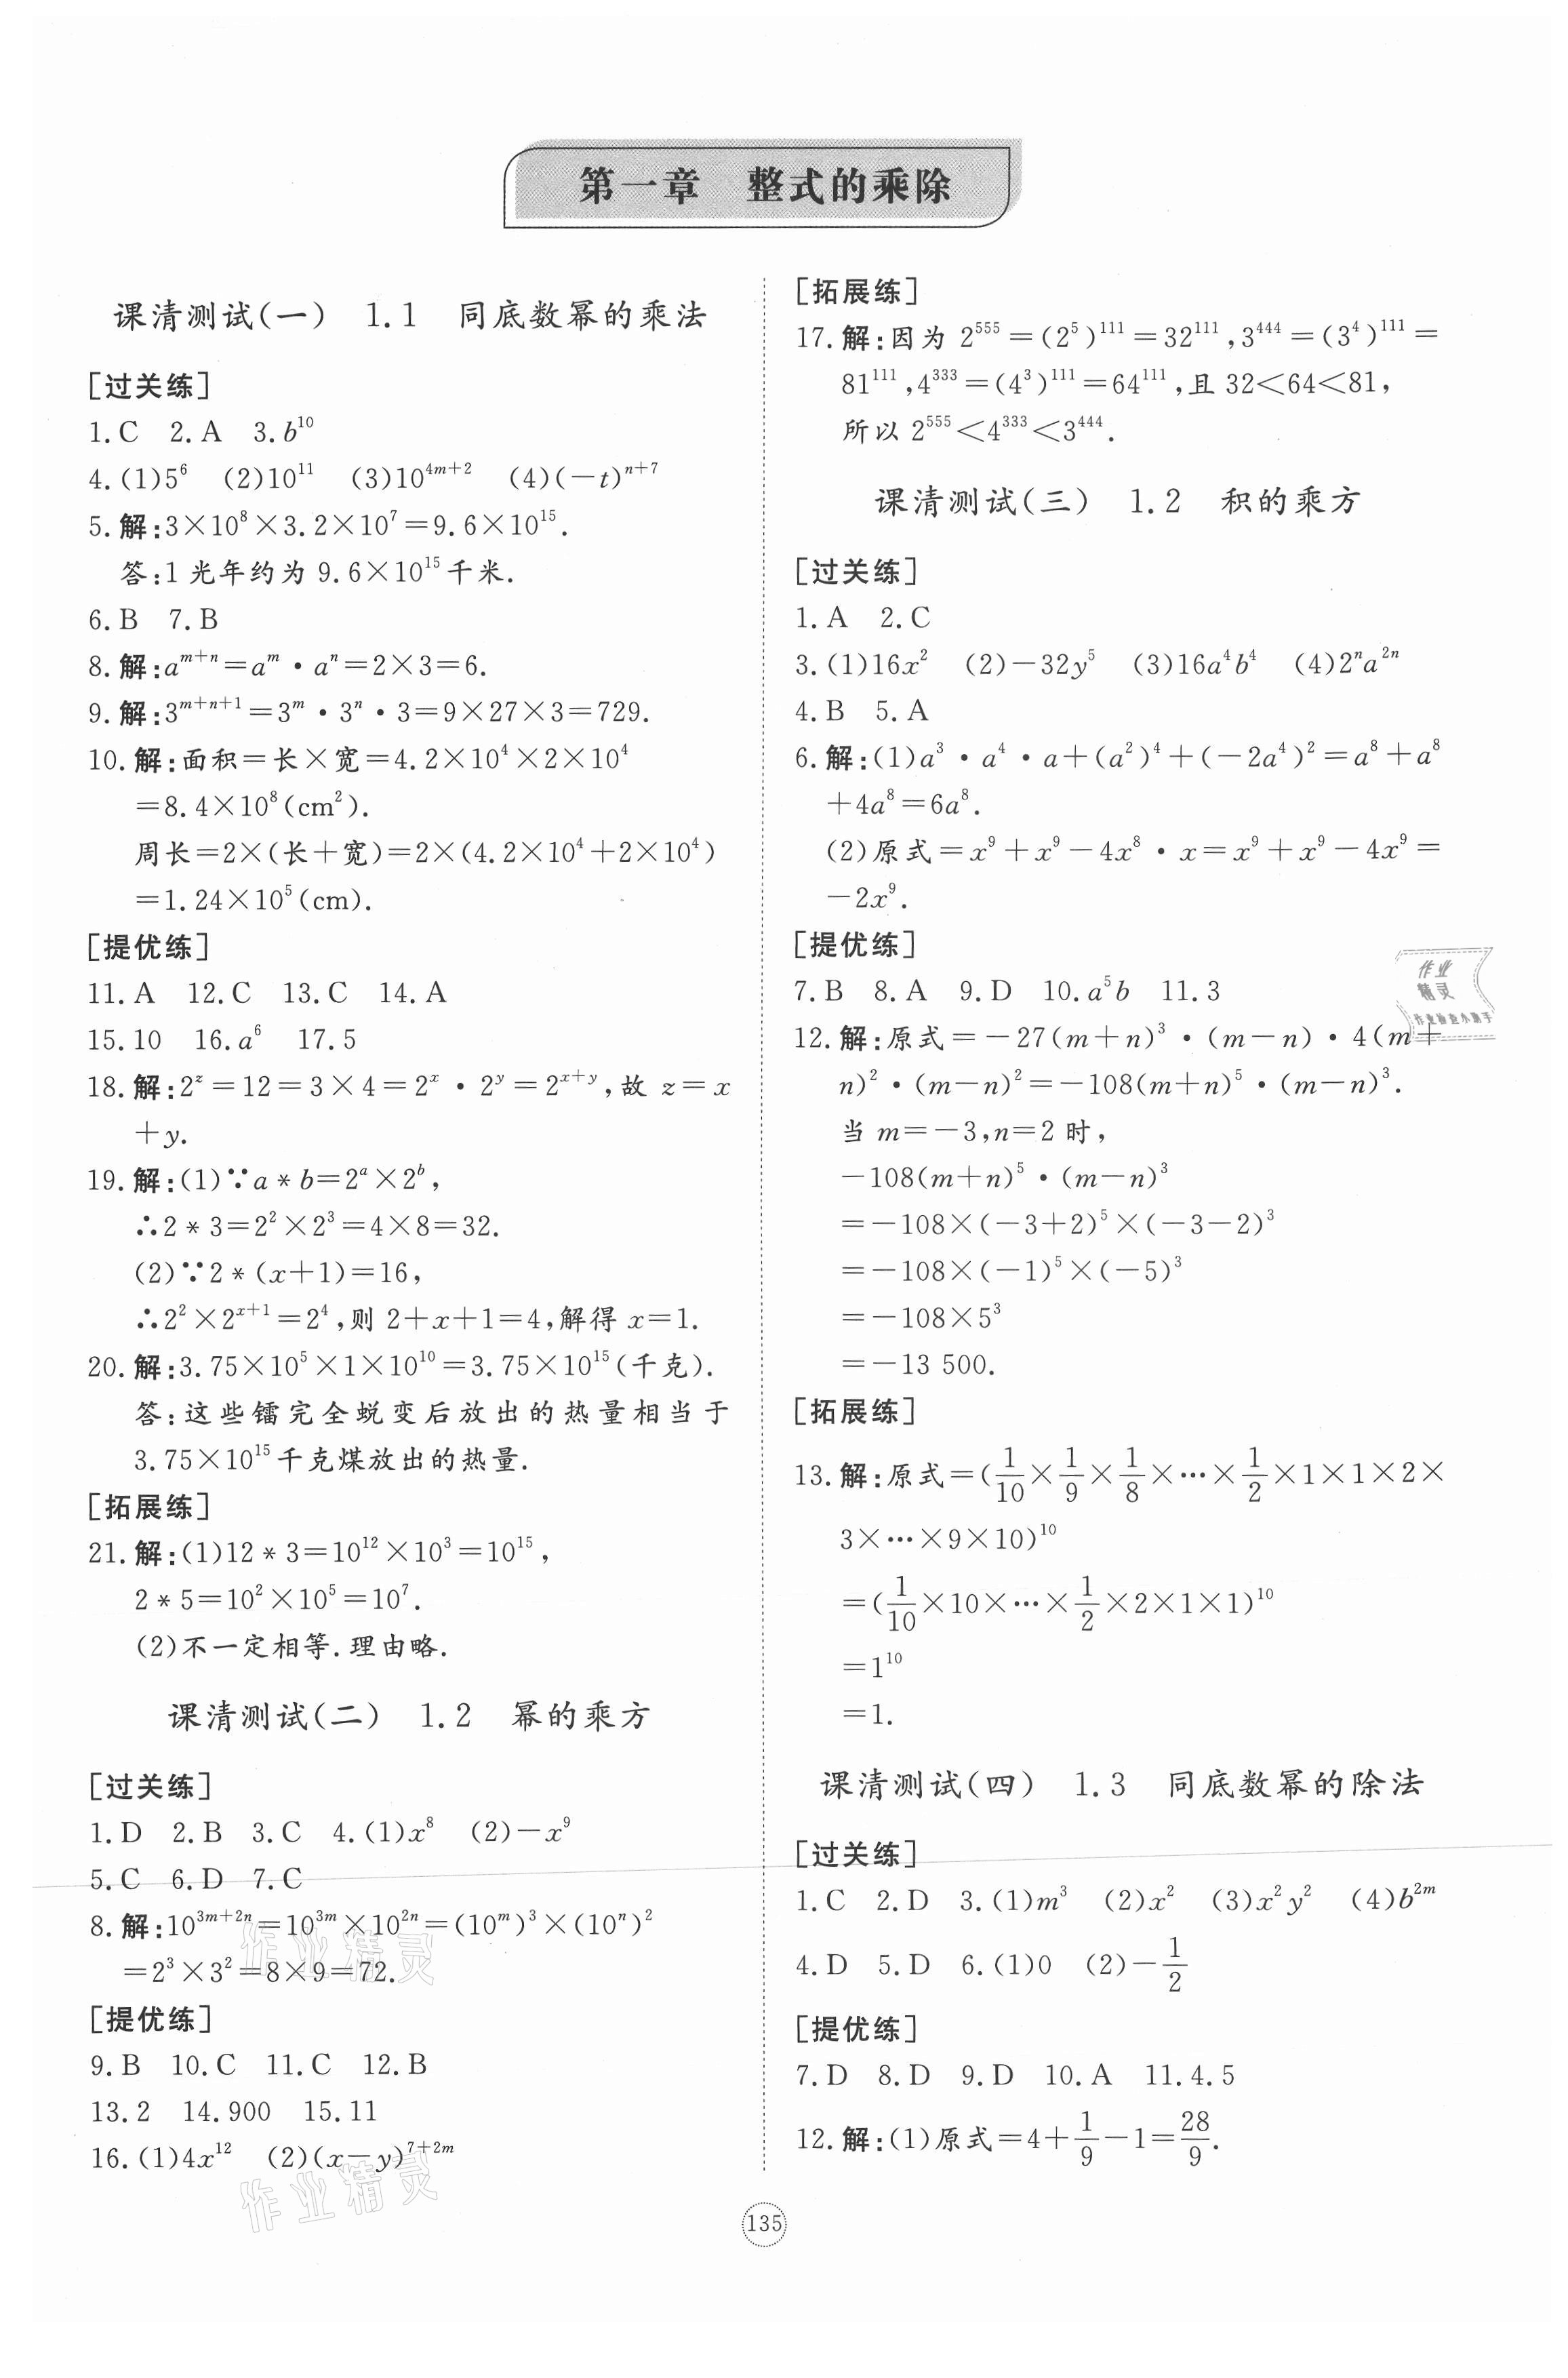 第一章 整式的乘除
课清测试(一) 1.1 同底数幂的乘法
[过关练]
1.C 2.A 3.b¹⁰
4.(1)5⁶ (2)10¹¹ (3)10⁴ᵐ⁺² (4)(−t)ⁿ⁺⁷
5.解:3×10⁸×3.2×10⁷=9.6×10¹⁵.
答:1光年约为9.6×10¹⁵千米.
6.B 7.B
8.解:aᵐ⁺ⁿ=aᵐ·aⁿ=2×3=6.
9.解:3ᵐ⁺ⁿ⁺¹=3ᵐ·3ⁿ·3=9×27×3=729.
10.解:面积=长×宽=4.2×10⁴×2×10⁴
=8.4×10⁸(cm²).
周长=2×(长+宽)=2×(4.2×10⁴+2×10⁴)
=1.24×10⁵(cm).
[提优练]
11.A 12.C 13.C 14.A
15.10 16.a⁶ 17.5
18.解:2ᶻ=12=3×4=2ˣ·2ʸ=2ˣ⁺ʸ,故 z=x
+y.
19.解:(1)∵a*b=2ᵃ×2ᵇ,
∴2*3=2²×2³=4×8=32.
(2)∵2*(x+1)=16,
∴2²×2ˣ⁺¹=2⁴,则2+x+1=4,解得x=1.
20.解:3.75×10⁵×1×10¹⁰=3.75×10¹⁵(千克).
答:这些镭完全蜕变后放出的热量相当于
3.75×10¹⁵千克煤放出的热量.
[拓展练]
21.解:(1)12*3=10¹²×10³=10¹⁵,
2*5=10²×10⁵=10⁷.
(2)不一定相等.理由略.
课清测试(二) 1.2 幂的乘方
[过关练]
1.D 2.B 3.C 4.(1)x⁸ (2)−x⁹
5.C 6.D 7.C
8.解:10³ᵐ⁺²ⁿ=10³ᵐ×10²ⁿ=(10ᵐ)³×(10ⁿ)²
=2³×3²=8×9=72.
[提优练]
9.B 10.C 11.C 12.B
13.2 14.900 15.11
16.(1)4x¹² (2)(x−y)⁷⁺²ᵐ
[拓展练]
17.解:因为 2⁵⁵⁵=(2⁵)¹¹¹=32¹¹¹,3⁴⁴⁴=(3⁴)¹¹¹=
81¹¹¹,4³³³=(4³)¹¹¹=64¹¹¹,且32<64<81,
所以2⁵⁵⁵<4³³³<3⁴⁴⁴.
课清测试(三) 1.2 积的乘方
[过关练]
1.A 2.C
3.(1)16x² (2)−32y⁵ (3)16a⁴b⁴ (4)2ⁿa²ⁿ
4.B 5.A
6.解:(1)a³·a⁴·a+(a²)⁴+(−2a⁴)²=a⁸+a⁸
+4a⁸=6a⁸.
(2)原式=x⁹+x⁹−4x⁸·x=x⁹+x⁹−4x⁹=
−2x⁹.
[提优练]
7.B 8.A 9.D 10.a⁵b 11.3
12.解:原式=−27(m+n)³·(m−n)·4(m+
n)²·(m−n)²=−108(m+n)⁵·(m−n)³.
当m=−3,n=2时,
−108(m+n)⁵·(m−n)³
=−108×(−3+2)⁵×(−3−2)³
=−108×(−1)⁵×(−5)³
=−108×5³
=−13 500.
[拓展练]
13.解:原式=(1/10×1/9×1/8×…×1/2×1×1×2×
3×…×9×10)¹⁰
=(1/10×10×…×1/2×2×1×1)¹⁰
=1¹⁰
=1.
课清测试(四) 1.3 同底数幂的除法
[过关练]
1.C 2.D 3.(1)m³ (2)x² (3)x²y² (4)b²ᵐ
4.D 5.D 6.(1)0 (2)−1/2
[提优练]
7.D 8.D 9.D 10.A 11.4.5
12.解:(1)原式=4+1/9−1=28/9.
135
作业
精灵
作业检查小助手
作业精灵
作业精灵